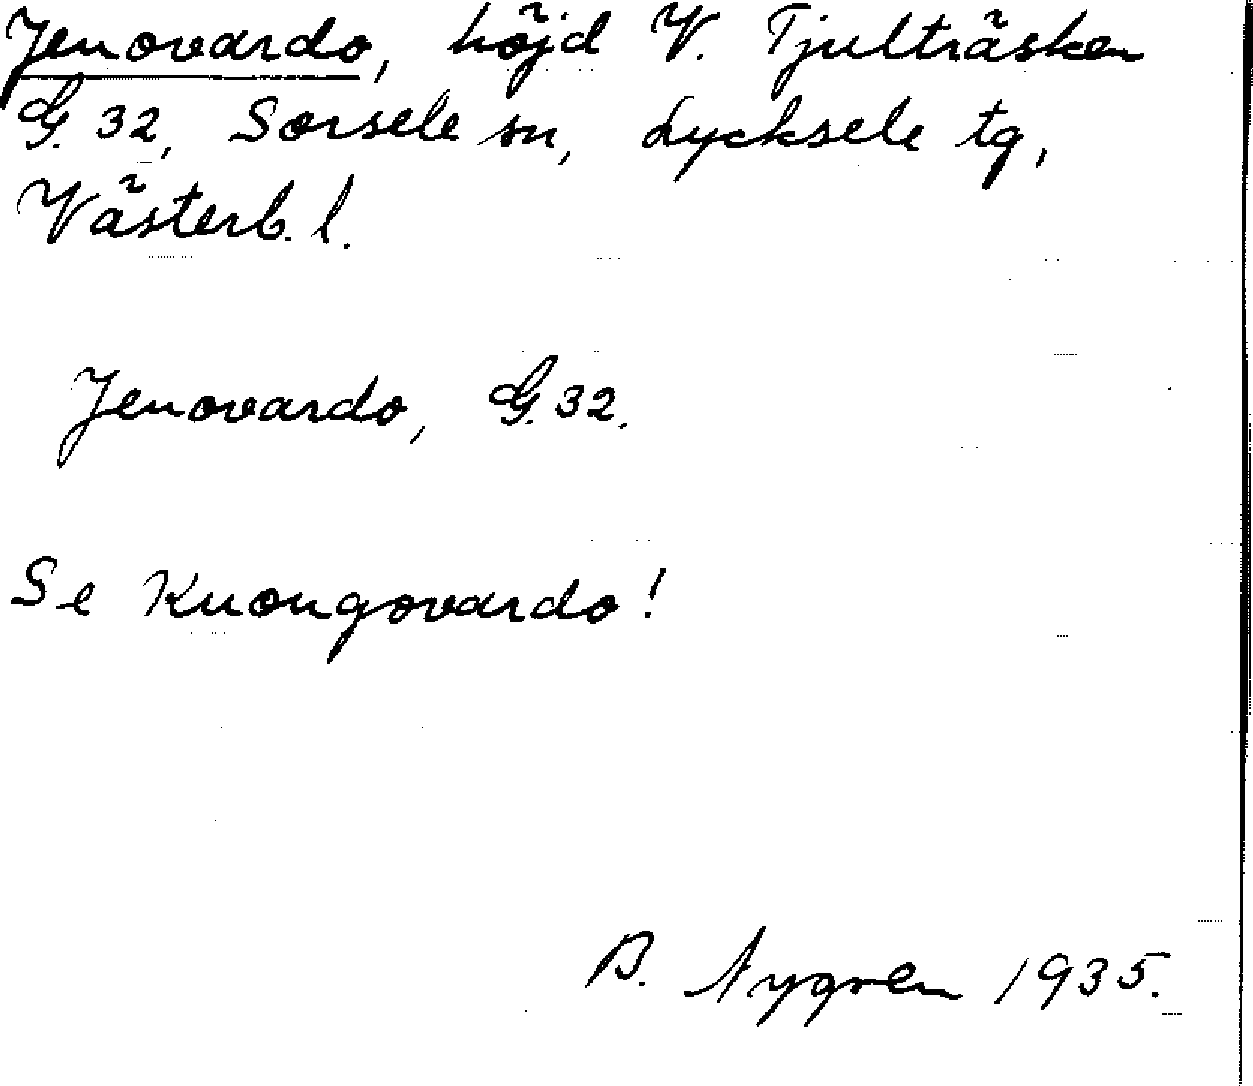 Jenovardo, höjd V. Tjulträsken
G. 32, Sorsele sn, Lycksele tg,
Västerb. l.
Jenovardo, G. 32.
Se Kuongovardo!
B. Nygren 1935.